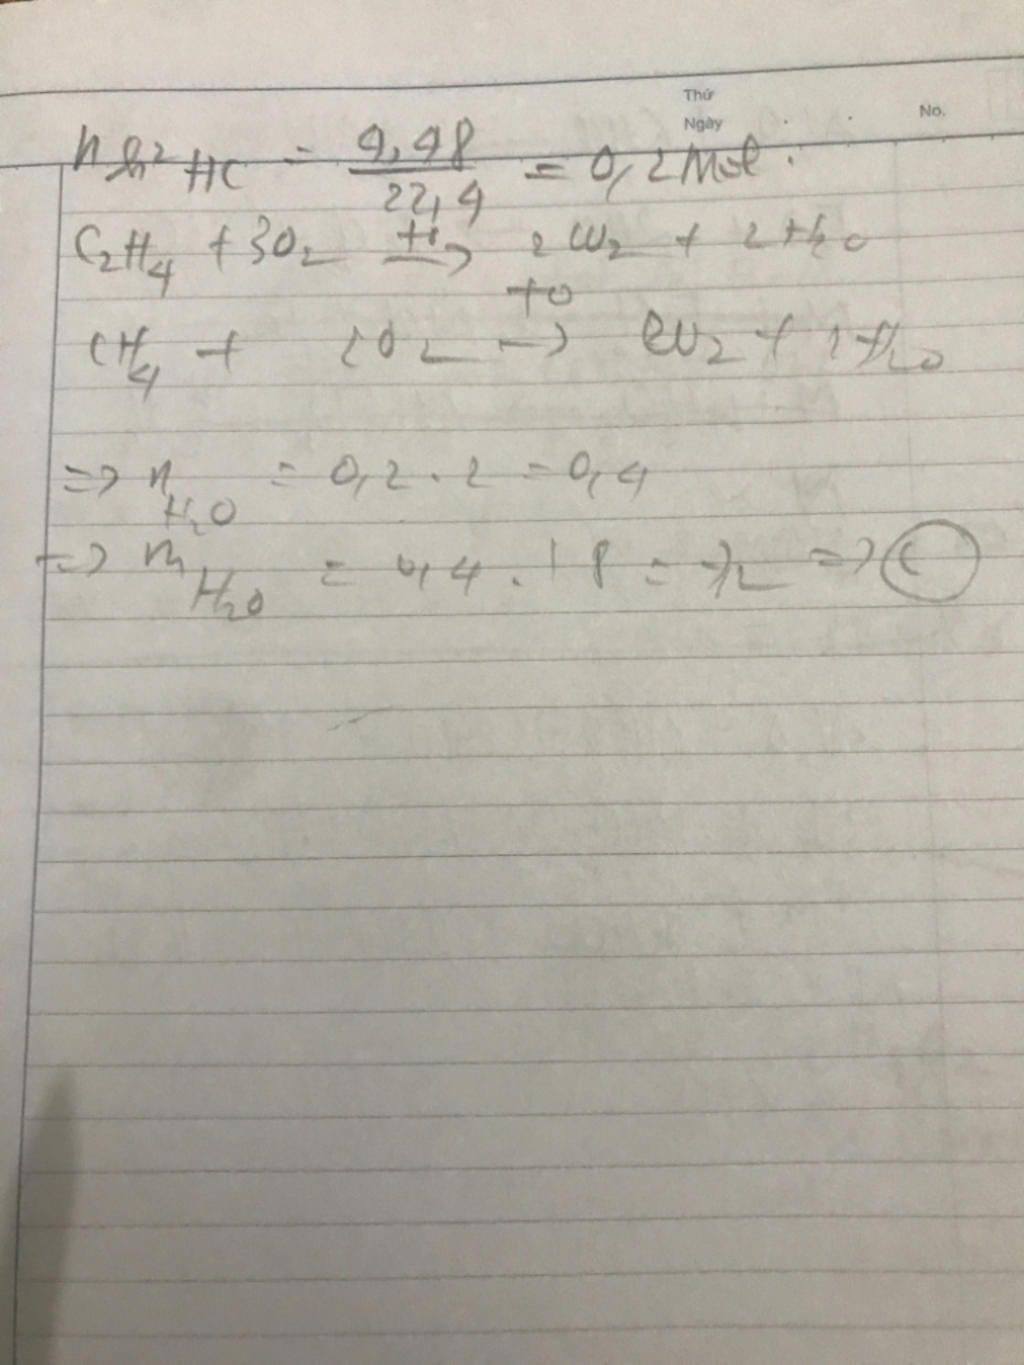 Thứ
Ngày
No.
n h² HC = 4,48 / 22,4 = 0,2 mol.
C₂H₄ + 3O₂ →(t°) 2CO₂ + 2H₂O
CH₄ + 2O₂ →(t°) CO₂ + 2H₂O
=> n H₂O = 0,2 . 2 = 0,4
=> m H₂O = 0,4 . 18 = 7,2 => C